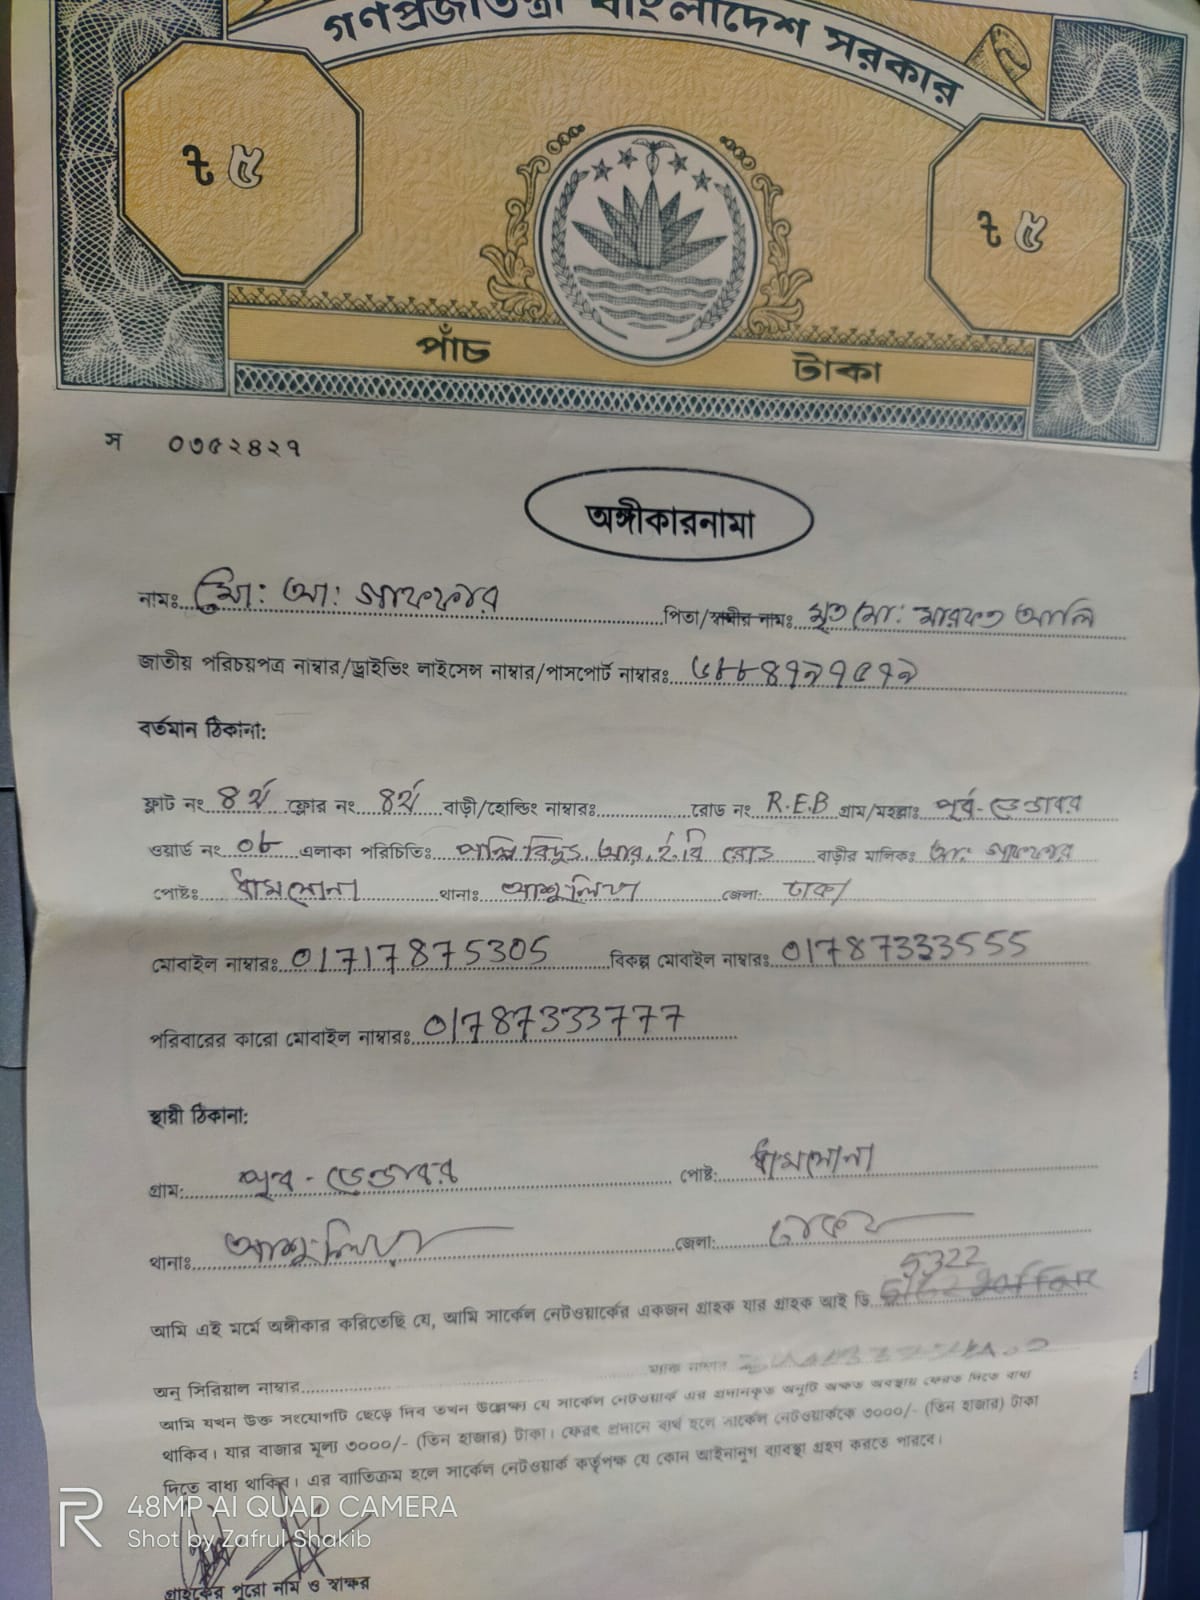 গণপ্রজাতন্ত্রী বাংলাদেশ সরকার
৳ ৫
৳ ৫
পাঁচ টাকা
স ০৩৫২৪২৭
অঙ্গীকারনামা
নামঃ মো: আ: গাফফার পিতা/স্বামীর নামঃ মৃত মো: মারফত আলি
জাতীয় পরিচয়পত্র নাম্বার/ড্রাইভিং লাইসেন্স নাম্বার/পাসপোর্ট নাম্বারঃ ৬৮৮৪৭৯৭৫৭৯
বর্তমান ঠিকানা:
ফ্লাট নং ৪র্থ ফ্লোর নং ৪র্থ বাড়ী/হোল্ডিং নাম্বারঃ রোড নং R.E.B গ্রাম/মহল্লাঃ পূর্ব-ডেন্ডাবর
ওয়ার্ড নং ০৮ এলাকা পরিচিতিঃ পল্লি বিদ্যুৎ আর.ই.বি রোড বাড়ীর মালিকঃ আ: গাফফার
পোষ্টঃ ধামসোনা থানাঃ আশুলিয়া জেলা: ঢাকা
মোবাইল নাম্বারঃ 01717875305 বিকল্প মোবাইল নাম্বারঃ 01787333555
পরিবারের কারো মোবাইল নাম্বারঃ 01787333777
স্থায়ী ঠিকানা:
গ্রাম: পূর্ব-ডেন্ডাবর পোষ্ট: ধামসোনা
থানাঃ আশুলিয়া জেলা: ঢাকা
5322
আমি এই মর্মে অঙ্গীকার করিতেছি যে, আমি সার্কেল নেটওয়ার্কের একজন গ্রাহক যার গ্রাহক আই ডি
অনু সিরিয়াল নাম্বার ম্যাক নাম্বার
আমি যখন উক্ত সংযোগটি ছেড়ে দিব তখন উল্লেক্ষ্য যে সার্কেল নেটওয়ার্ক এর প্রদানকৃত অনুটি অক্ষত অবস্থায় ফেরত দিতে বাধ্য
থাকিব। যার বাজার মূল্য ৩০০০/- (তিন হাজার) টাকা। ফেরৎ প্রদানে ব্যর্থ হলে সার্কেল নেটওয়ার্ককে ৩০০০/- (তিন হাজার) টাকা
দিতে বাধ্য থাকিব। এর ব্যাতিক্রম হলে সার্কেল নেটওয়ার্ক কর্তৃপক্ষ যে কোন আইনানুগ ব্যাবস্থা গ্রহণ করতে পারবে।
48MP AI QUAD CAMERA
Shot by Zafrul Shakib
গ্রাহকের পুরো নাম ও স্বাক্ষর